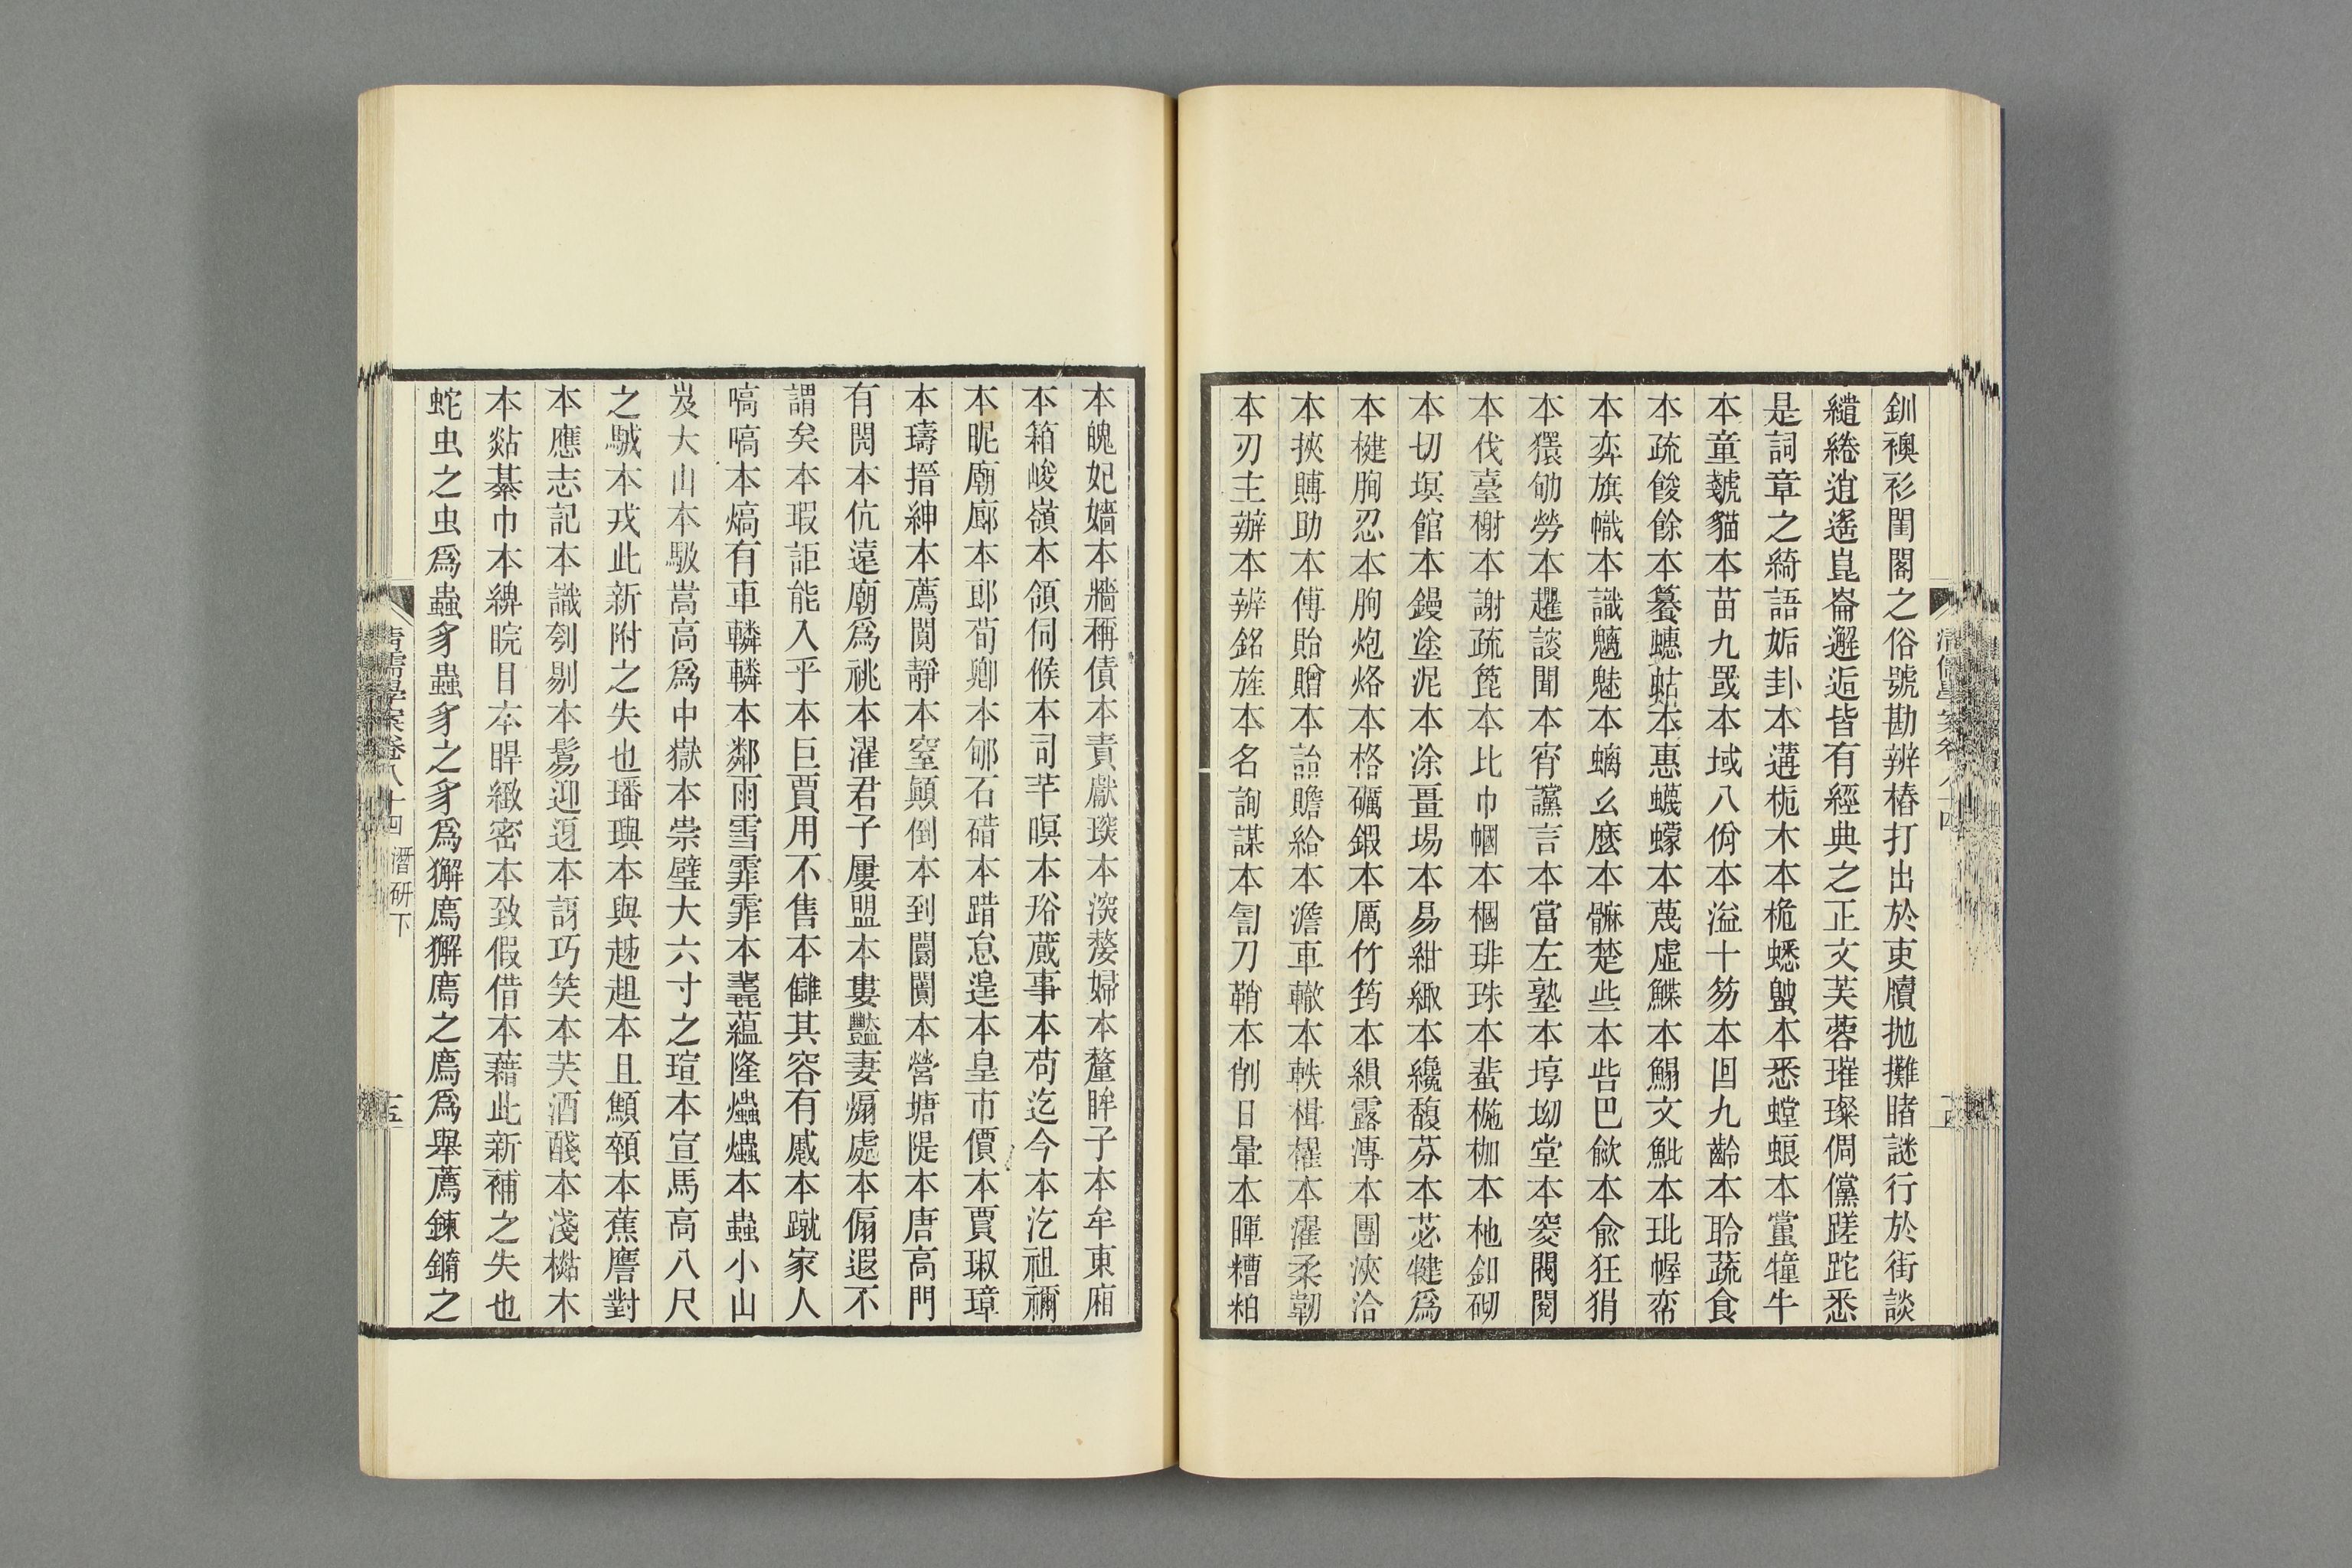 釧襖衫閨閣之俗號勘辨樁打出於吏牘抛攤賭謎行於街談
繾綣逍遙崑崙邂逅皆有經典之正文芙蓉璀璨倜儻蹉跎悉
是詞章之綺語姤卦本遘柅木本檷蟋蟀本悉螳蜋本堂犝牛
本童虦貓本苗九罭本域八佾本溢十笏本回九齡本聆蔬食
本疏餕餘本籑蟪蛄本惠蠛蠓本蔑虛鰈本鰨文魮本玭幄帟
本弈旗幟本識魑魅本螭幺麼本髍楚些本呰巴歈本兪狂狷
本獧劬勞本趯談聞本宵讜言本當左塾本埻坳堂本窔閥閱
本伐臺榭本謝疏篦本比巾幗本槶琲珠本蜚椸枷本杝釦砌
本切塓館本鏝塗泥本涂畺埸本易紺緅本纔馥芬本苾犍爲
本楗朐忍本朐炮烙本格礪鍜本厲竹筠本縜露漙本團浹洽
本挾賻助本傅貽贈本詒贍給本澹車轍本軼楫櫂本濯柔韌
本刃主辦本辨銘旌本名詢謀本訇刀鞘本削日暈本暉糟粕
本魄妃嬙本牆稱債本責獻琛本滾嫠婦本釐眸子本牟東廂
本箱峻嶺本領伺候本司芊暝本裕蕆事本苟迄今本汔祖禰
本昵廟廊本郎荀卿本郇石碏本踖怠遑本皇市價本賈琡璋
本璹搢紳本薦闃靜本窒顚倒本到闤闠本營塘隄本唐高門
有閌本伉遠廟爲祧本濯君子屢盟本婁豔妻煽處本偏遐不
謂矣本瑕詎能入乎本巨賈用不售本讎其容有蹙本蹴家人
嗃嗃本熇有車轔轔本鄰雨雪霏霏本靟蘊隆爞爞本蟲小山
岌大山本馺嵩高爲中嶽本崇璧大六寸之瑄本宣馬高八尺
之駥本戎此新附之失也璠璵本與趑趄本且顦顇本蕉譍對
本應志記本識刳剔本鬄迎迓本訝巧笑本芺酒醆本淺櫫木
本㸃綦巾本綼睆目本睅緻密本致假借本藉此新補之失也
蛇虫之虫爲蟲豸蟲豸之豸爲獬廌獬廌之廌爲舉薦鍊鏅之
清儒學案卷八十四 潛研下